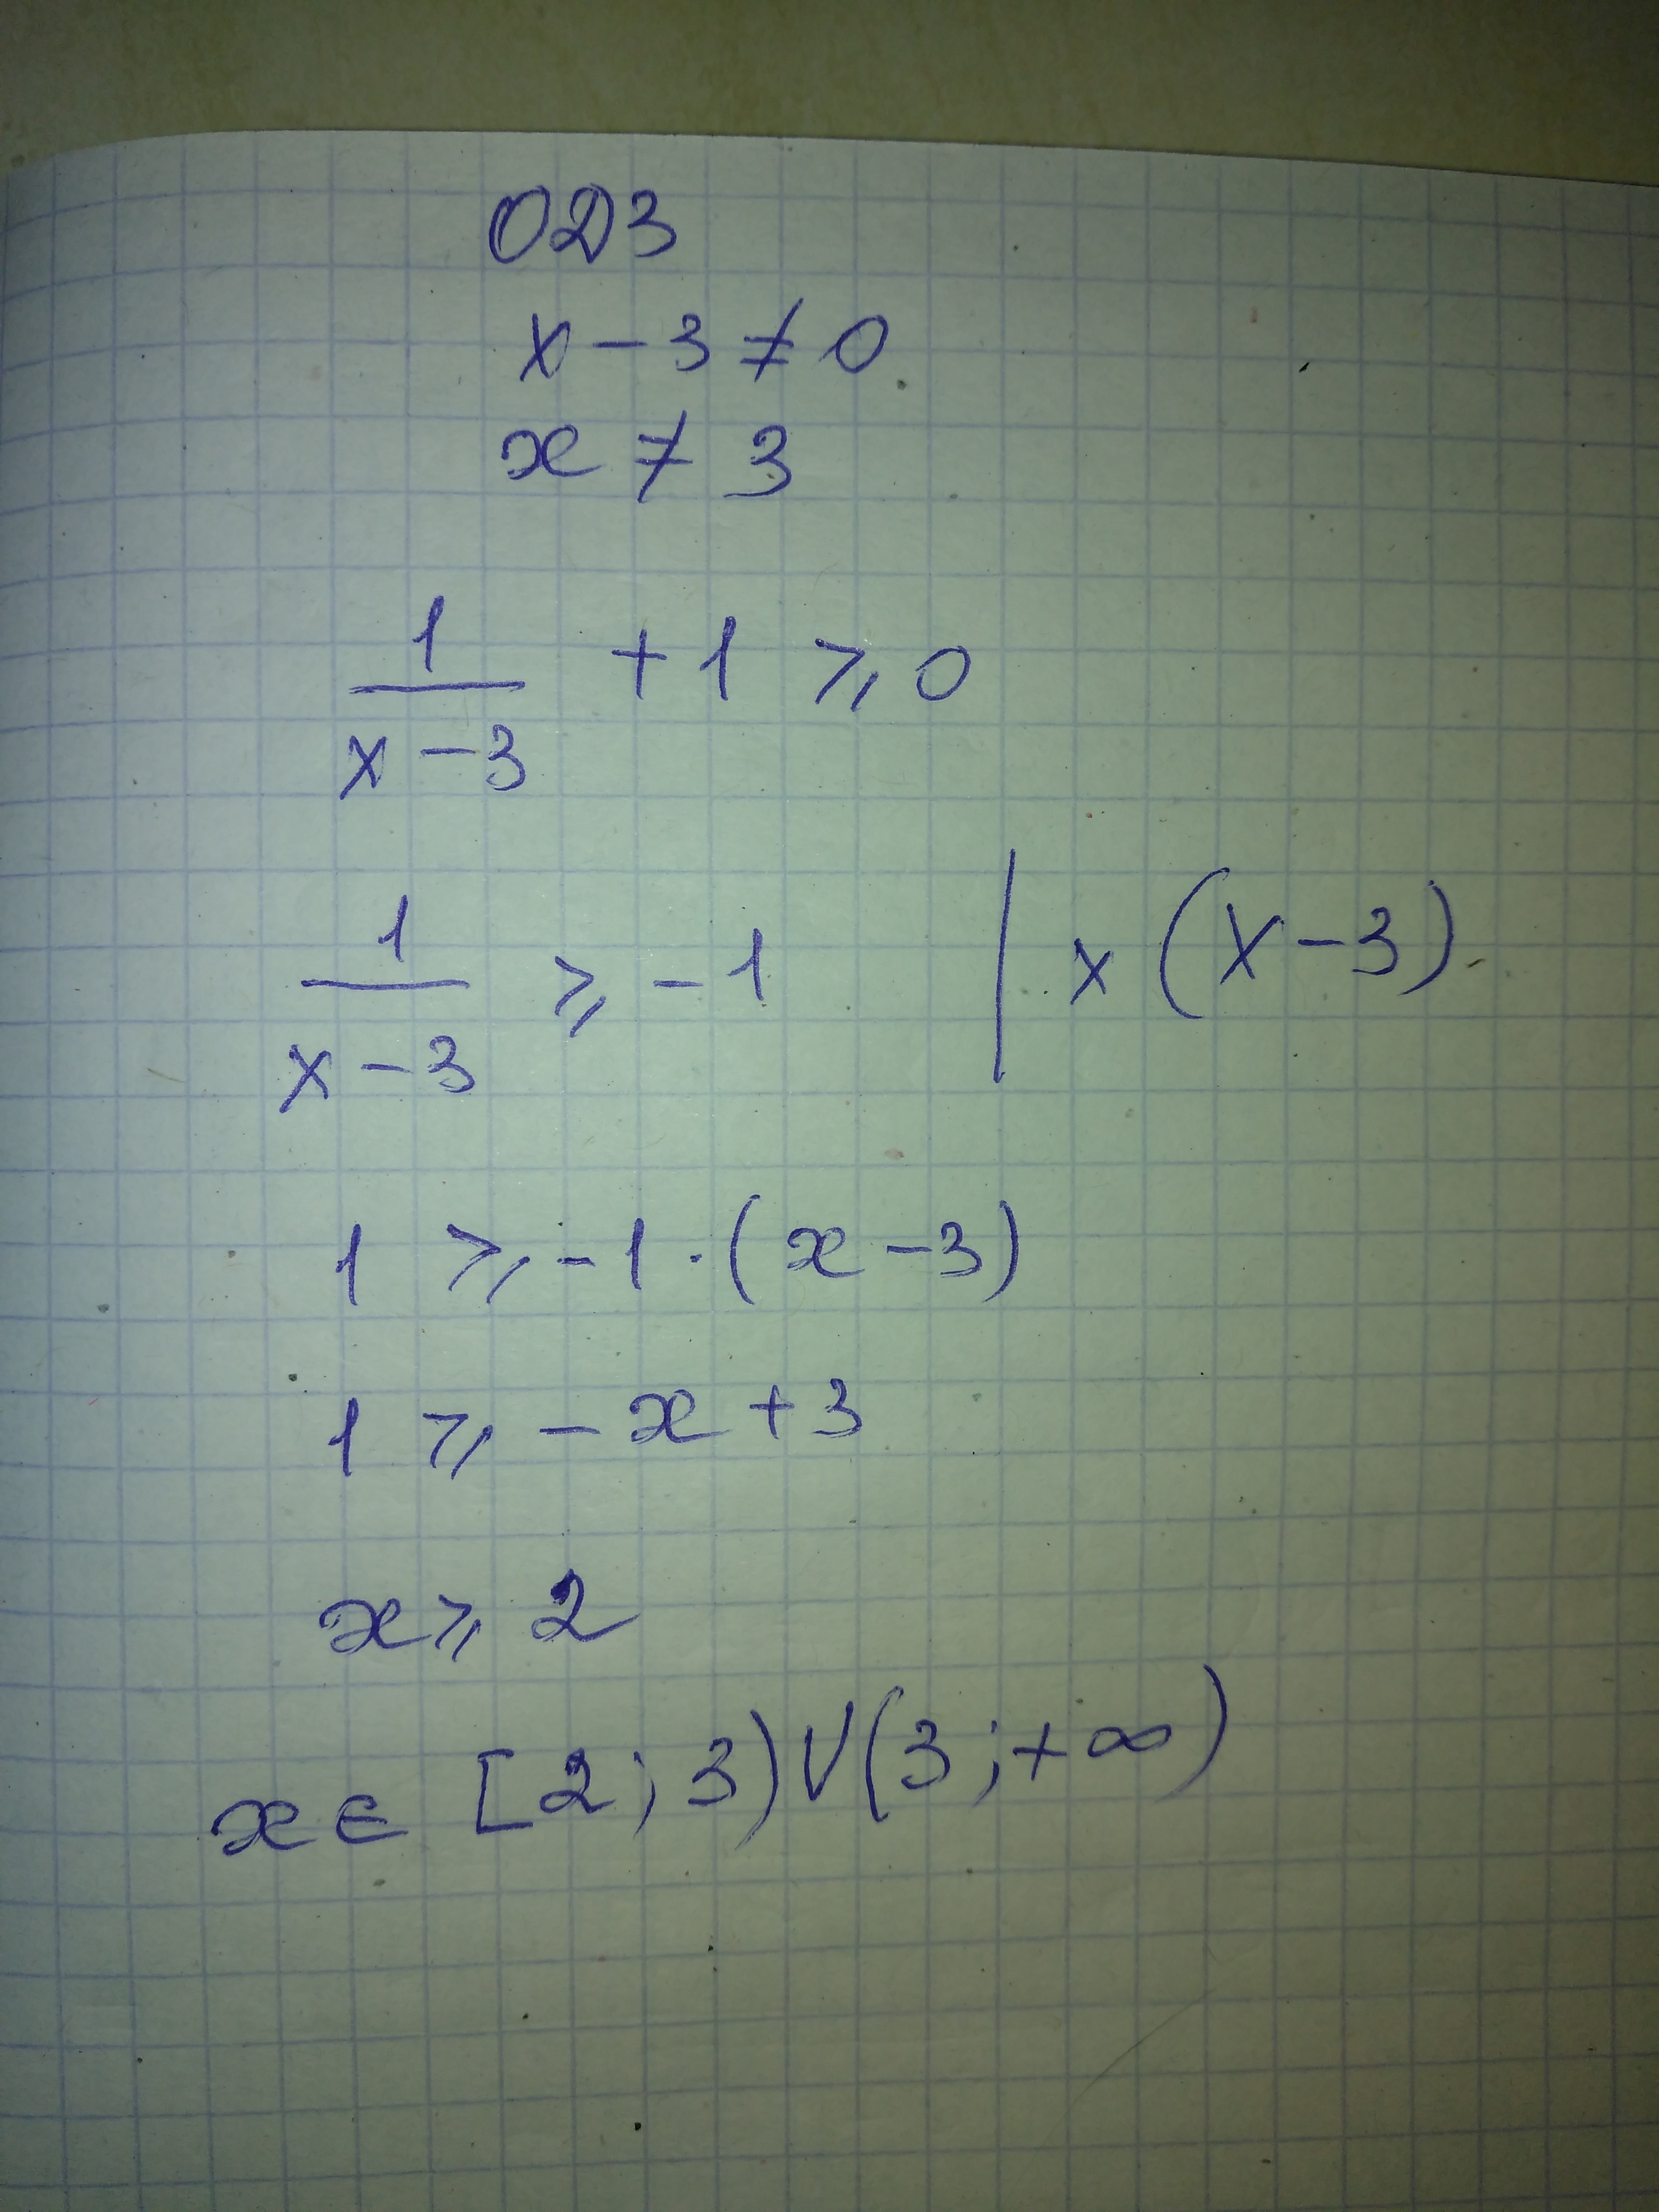 ОДЗ
x - 3 ≠ 0
x ≠ 3
1/(x - 3) + 1 ⩾ 0
1/(x - 3) ⩾ -1 | × (x - 3)
1 ⩾ -1 · (x - 3)
1 ⩾ - x + 3
x ⩾ 2
x ∈ [2; 3) ∪ (3; +∞)